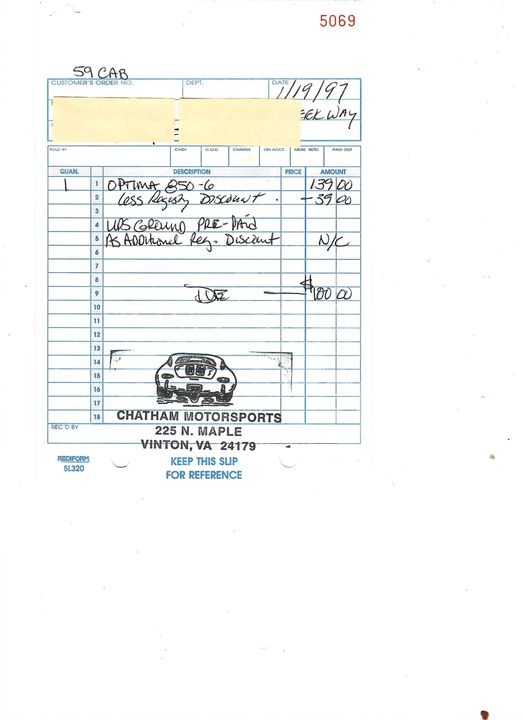 5069
59 CAB
CUSTOMER'S ORDER NO. DEPT. DATE
1/19/97
EEK WAY
SOLD BY CASH C.O.D. CHARGE ON ACCT. MDSE. RETD. PAID OUT
QUAN. DESCRIPTION PRICE AMOUNT
1 1 OPTIMA 850-6 139 00
2 Less Registry DISCOUNT - 39 00
3
4 UPS GROUND PRE-PAID
5 AS Additional Reg. Discount N/C
6
7
8
9 DUE $100 00
10
11
12
13
14
15
16
17
18
CHATHAM MOTORSPORTS
REC'D BY
225 N. MAPLE
VINTON, VA 24179
REDIFORM
5L320
KEEP THIS SLIP
FOR REFERENCE